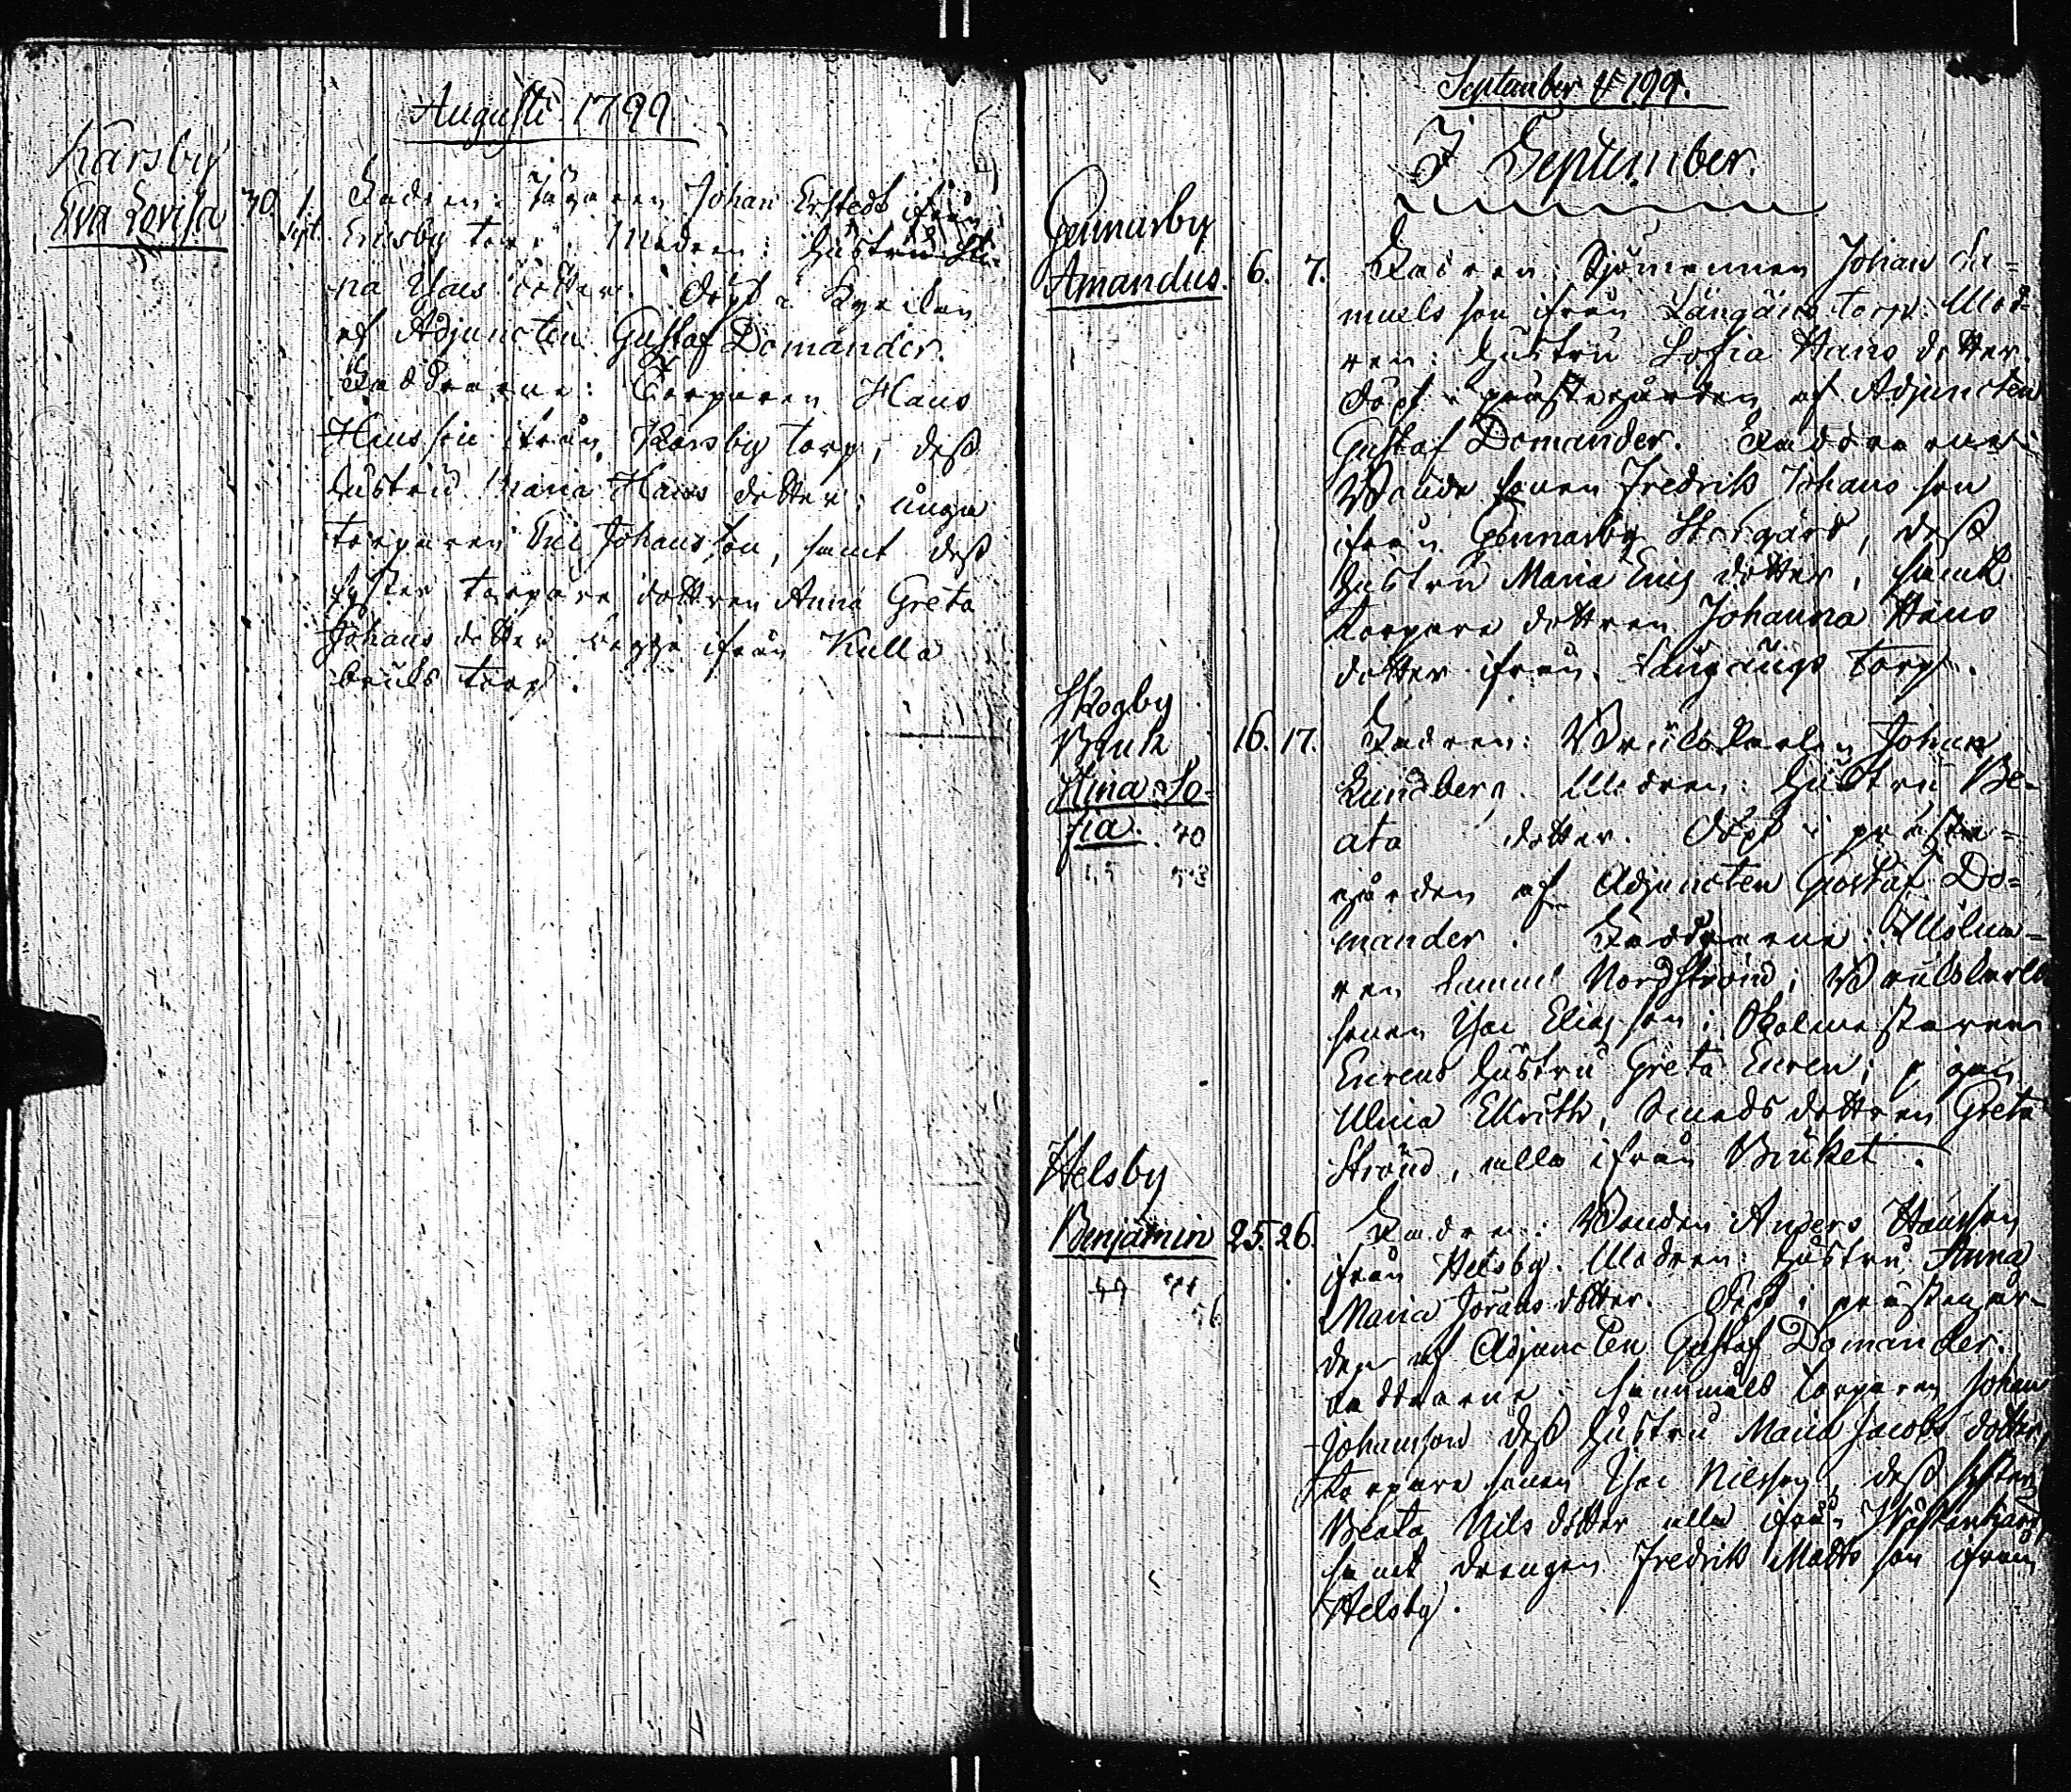 Augusti 1799.
Karsby
Eva Lovisa 30. 1. Sept.
Fadren: Johan Erstedt ifrån
Ensby torp. Modren: Hustru Sti-
na Isacs dotter. Döpt i Kyrckan
af Adjuncten Gustaf Domander.
Faddrarne: Torparen Hans
Hansson ifrån Karsby torp, dess
hustru Maria Hans dotter; unga
torparen Johansson, samt dess
syster torpare dottren Anna Greta
Johans dotter begge ifrån Kulla
bruks torp.
September 1799.
I September.
Gennarby
Amandus. 6. 7.
Fadren: Sjömannen Johan Sa-
muels son ifrån Långängs torp. Mod-
ren: hustru Sofia Hans dotter.
Döpt i prästegården af Adjuncten
Gustaf Domander. Faddrarne:
Bonde sonen Fredrik Johans son
ifrån Gennarby Storgård, dess
hustru Maria Erics dotter, samt
torpare dottren Johanna Hans
dotter ifrån Långängs torp.
Skogby
Bruk
Stina So-
fia. 16. 17.
40
Fadren: Brukskarlen Johan
Lundberg. Modren: Hustru Be-
ata dotter. Döpt i präste-
gården af Adjuncten Gustaf Do-
mander. Faddrarne: Mölna-
ren Samuel Nordström; Brukskarls
sonen Isac Eliasson; Kolmästaren
Eurens hustru Greta Euren; pigan
Ulrica, Smeds dottren Greta
Strönd, alla ifrån Bruket.
Helsby
Benjamin 25. 26.
Fadren: Bonden Anders Hansson
ifrån Helsby. Modren: hustru Anna
Maria Jörans dotter. Döpt i prästegår-
den af Adjuncten Gustaf Domander.
Faddrarne: torparen Johan
Johansson dess hustru Maria Jacobs dotter,
torpare sonen Isac Nilsson, dess syster
Beata Nils dotter alla ifrån
samt drengen Fredrik Matts son ifrån
Helsby.